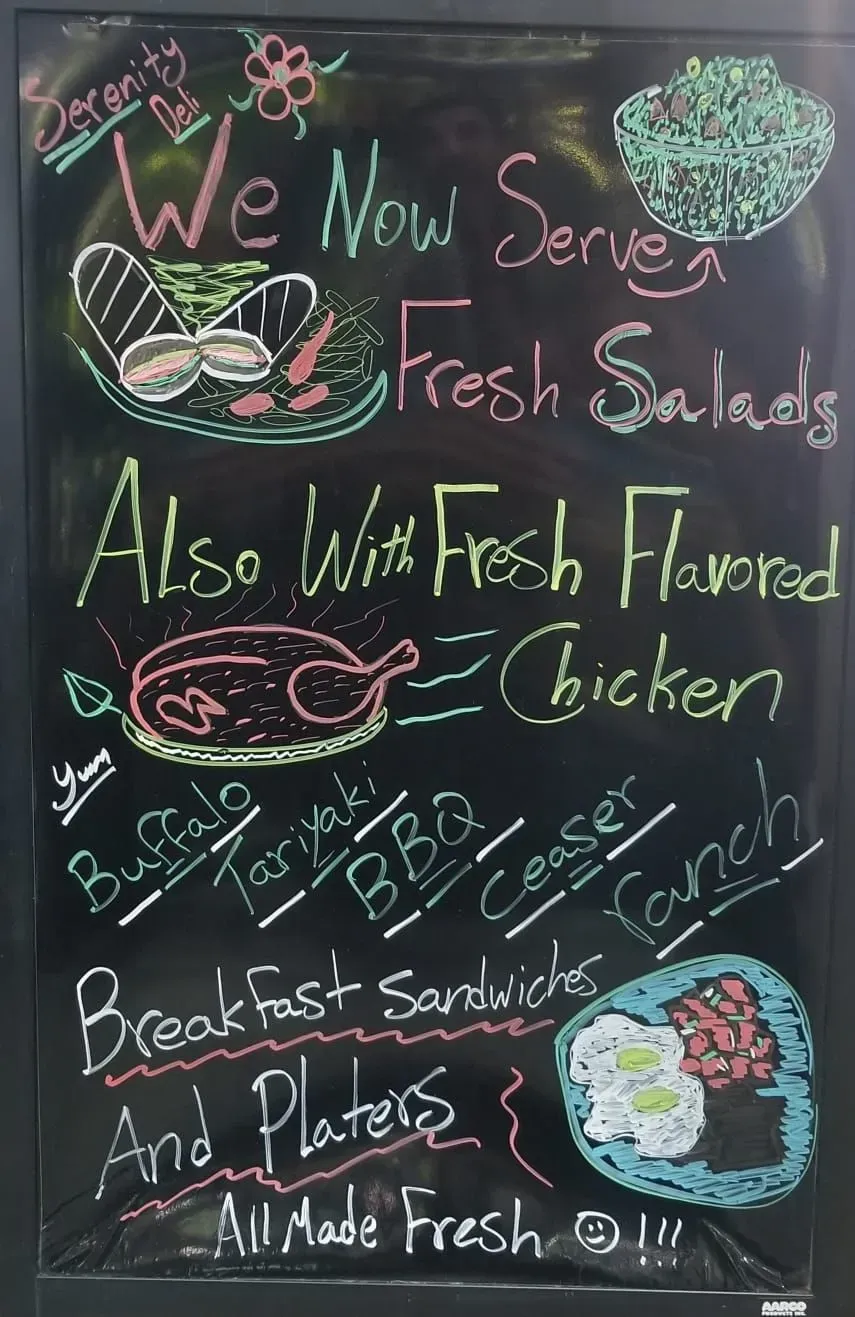 Serenity
Deli
We Now Serve
Fresh Salads
Also With Fresh Flavored
Chicken
Yum
Buffalo Tariyaki BBQ Ceaser ranch
Breakfast Sandwiches
And Platers
All Made Fresh !!!
AARCO
PRODUCTS INC.